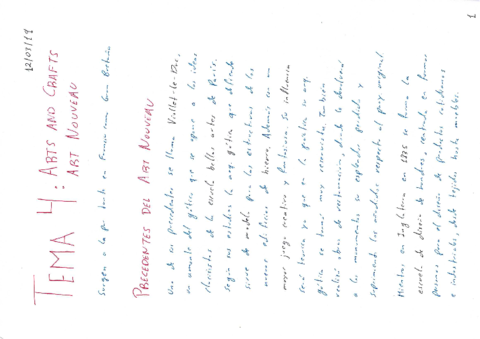 12/03/19
1
TEMA 4: ARTS AND CRAFTS
ART NOUVEAU
Surgen a la par tanto en Francia como Gran Bretaña
PRECEDENTES DEL ART NOUVEAU
Uno de sus precedentes se llama Viollet-le-Duc,
un amante del gótico que se opone a las ideas
clasicistas de la escuela bellas artes de París.
Según sus estudios la arq. gótica
sirve de modelo para las estructuras de los
nuevos edificios de hierro. Además con un
mayor juego creativo y fantasioso. Su influencia
será teórica ya que en la práctica su arq.
gótica se tomó muy También
realizó obras de restauración, donde le devolverá
a los monumentos su esplendor perdido y
los modelos respecto al original
Mientras en Inglaterra en se forma la
escuela de diseño de Londres, centrada en formar
personas para el diseño de productos cotidianos
e industriales, desde tejidos hasta muebles.